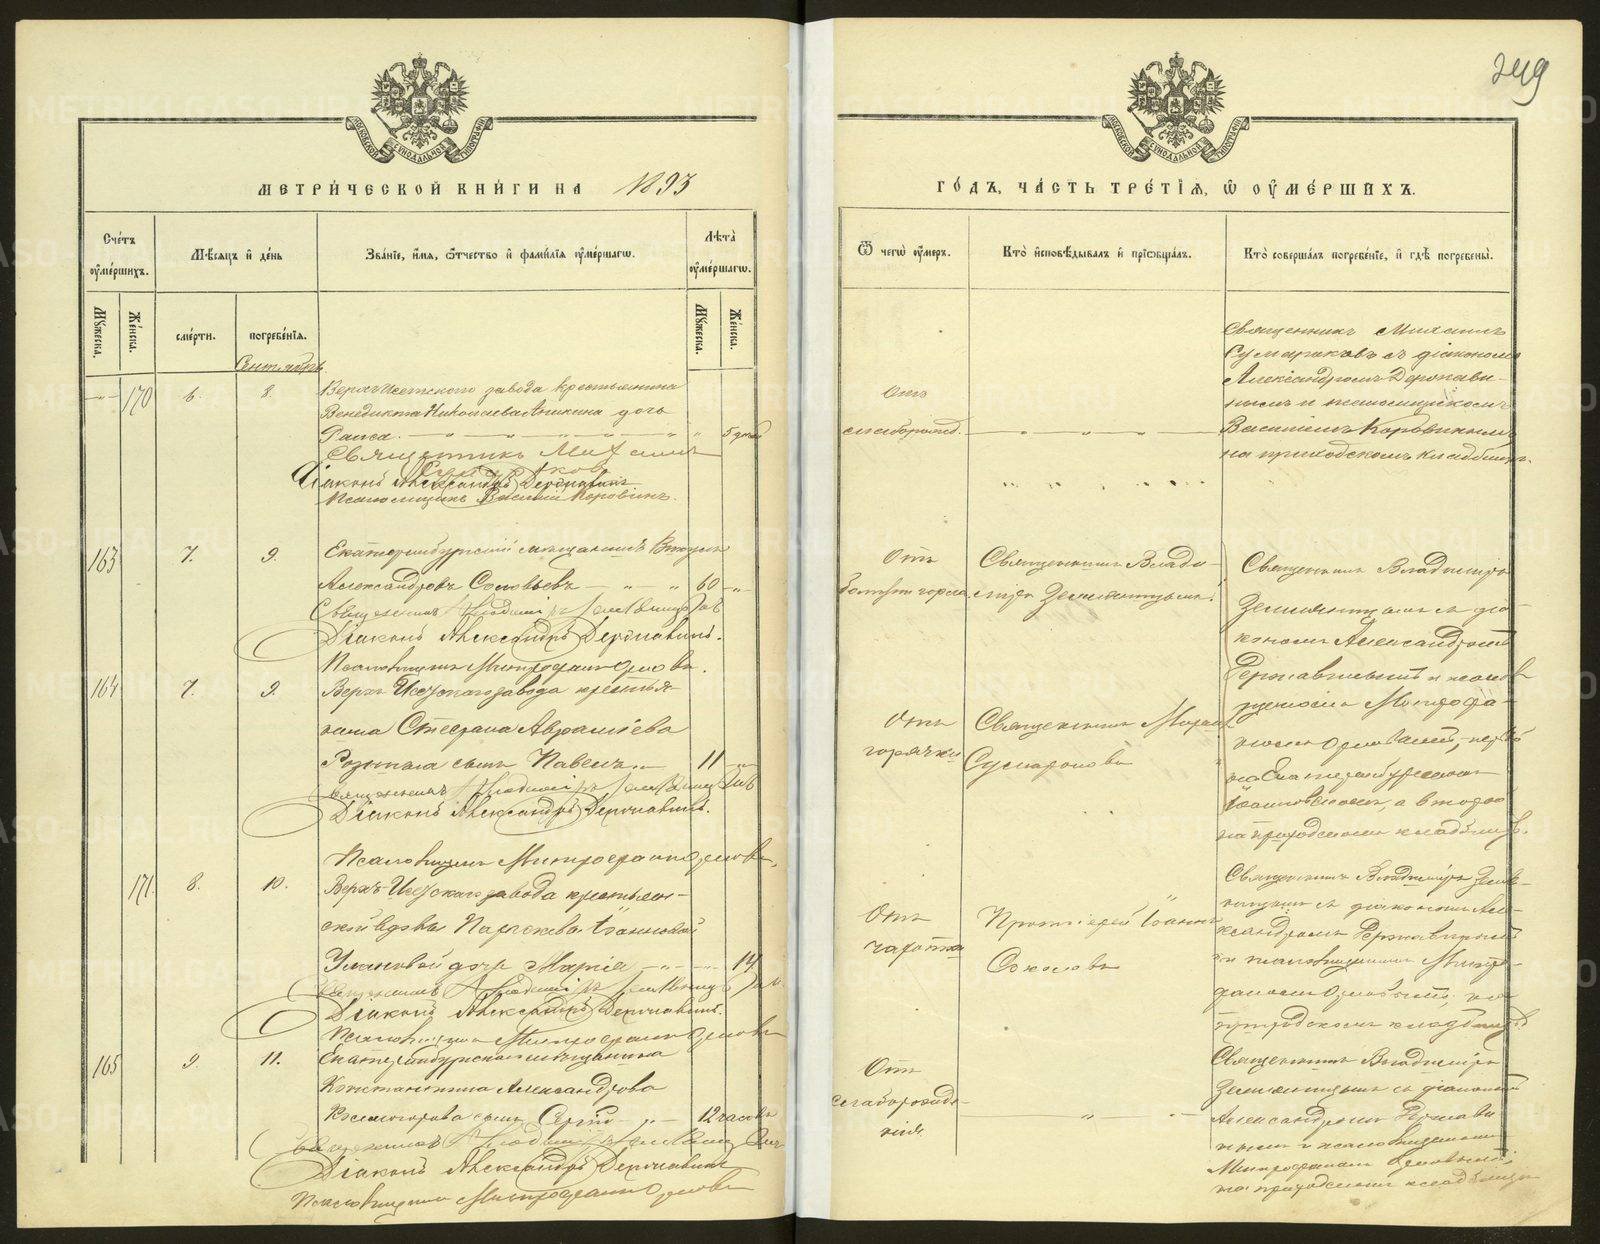 249
МЕТРИ́ЧЕСКОЙ КНИ́ГИ НА 1893
ГО́ДЪ, ЧА́СТЬ ТРЕ́ТІѦ, Ѽ ОУ҆МЕ́РШИХЪ.
Сче́тъ оу҆ме́ршихъ.
Мѣ́сяцъ и҆ де́нь
Зва́ніе, и҆́мя, ѻ҆́тчество и҆ фами́лія оу҆ме́ршагѡ.
Лѣта̀ оу҆ме́ршагѡ.
Ѿ чегѡ̀ оу҆́меръ.
Кто̀ и҆сповѣ́дывалъ и҆ пріѻбща́лъ.
Кто̀ соверша́лъ погребе́ніе, и҆ гдѣ̀ погребены̀.
Мꙋ́жеска.
Же́нска.
сме́рти.
погребе́нія.
Мꙋ́жеска.
Же́нска.
Сентябрь
170 6. 8.
Верхъ-Исетскаго завода крестьянина
Венедикта Николаева Аникина дочь
Раиса 5 дней
Священникъ Михаилъ
Діаконъ Александръ Державинъ
Псаломщикъ Василій Коровинъ.
отъ
слаборожд.
Священникъ Михаилъ
Сумароковъ съ діакономъ
Александромъ Держави-
нымъ и псаломщикомъ
Василіемъ Коровинымъ
на приходскомъ кладбищѣ.
163 7. 9.
Екатеринбургскій мѣщанинъ
Александровъ Соловьевъ 60
Священникъ Владиміръ Земляницынъ
Діаконъ Александръ Державинъ.
Псаломщикъ Митрофанъ Орловъ.
Отъ
болѣзни горла.
Священникъ Влади-
міръ Земляницынъ.
Священникъ Владиміръ
Земляницынъ съ діа-
кономъ Александромъ
Державинымъ и псалом-
щикомъ Митрофа-
номъ Орловымъ, первый
на Екатеринбургскомъ
Іоанновскомъ, а второй
на приходскомъ кладбищѣ.
164 7. 9.
Верхъ-Исетскаго завода крестья-
нина Стефана Авраміева
сынъ Павелъ 11
Священникъ Владиміръ Земляницынъ
Діаконъ Александръ Державинъ.
Псаломщикъ Митрофанъ Орловъ.
Отъ
горячки
Священникъ Михаилъ
Сумароковъ
171. 8. 10.
Верхъ-Исетскаго завода крестьян-
ской вдовы Параскевы Іоанновой
Улановой дочь Марія 14
Священникъ Владиміръ Земляницынъ
Діаконъ Александръ Державинъ.
Псаломщикъ Митрофанъ Орловъ
Отъ
чахотки
Протоіерей Іоаннъ
Соколовъ
Священникъ Владиміръ Земля-
ницынъ съ діакономъ Але-
ксандромъ Державинымъ
и псаломщикомъ Митро-
фаномъ Орловымъ, на
приходскомъ кладбищѣ
165 9. 11.
Екатеринбургскаго мѣщанина
Константина Александрова
сынъ Сергій 12 часовъ
Священникъ Владиміръ Земляницынъ
Діаконъ Александръ Державинъ
Псаломщикъ Митрофанъ Орловъ
Отъ
слаборожде-
нія.
Священникъ Владиміръ
Земляницынъ съ діакономъ
Александромъ Держави-
нымъ и псаломщикомъ
Митрофаномъ Орловымъ,
на приходскомъ кладбищѣ
METRIKI.GASO-URAL.RU